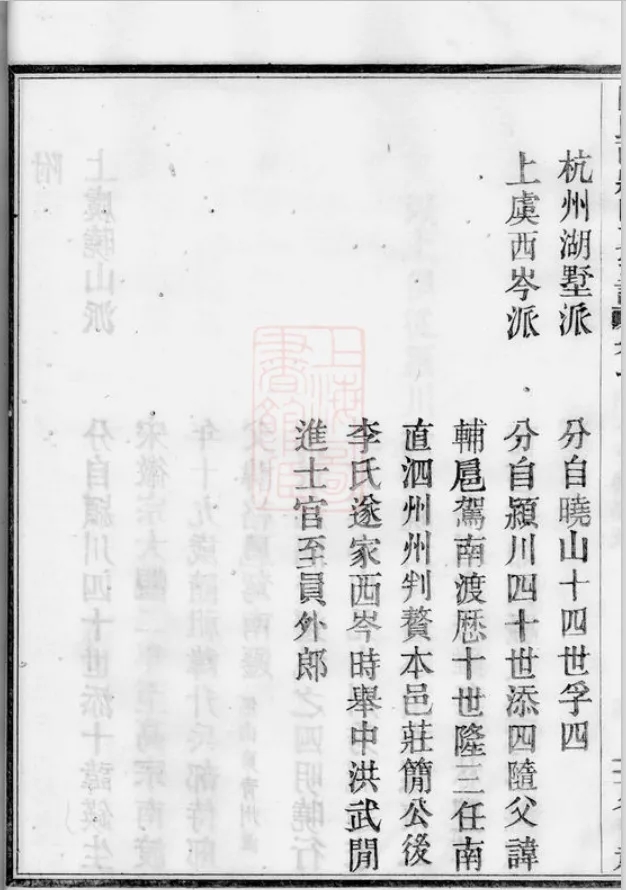 杭州湖墅派 分自曉山十四世孚四
上虞西岑派 分自潁川四十世添四隨父諱
輔扈駕南渡歷十世隆三任南
直泗州州判贅本邑莊簡公後
李氏遂家西岑時舉中洪武間
進士官至員外郎
上海圖書館藏